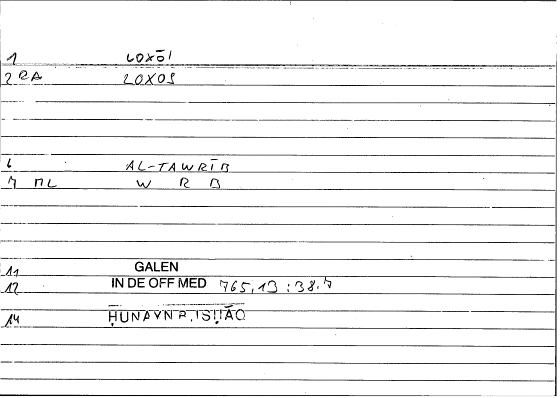 1 LOXŌI
2 RA LOXOS
6 AL-TAWRĪB
7 ML W R B
11 GALEN
12 IN DE OFF MED 765,13 : 38.7
14 ḤUNAYN B. ISḤĀQ